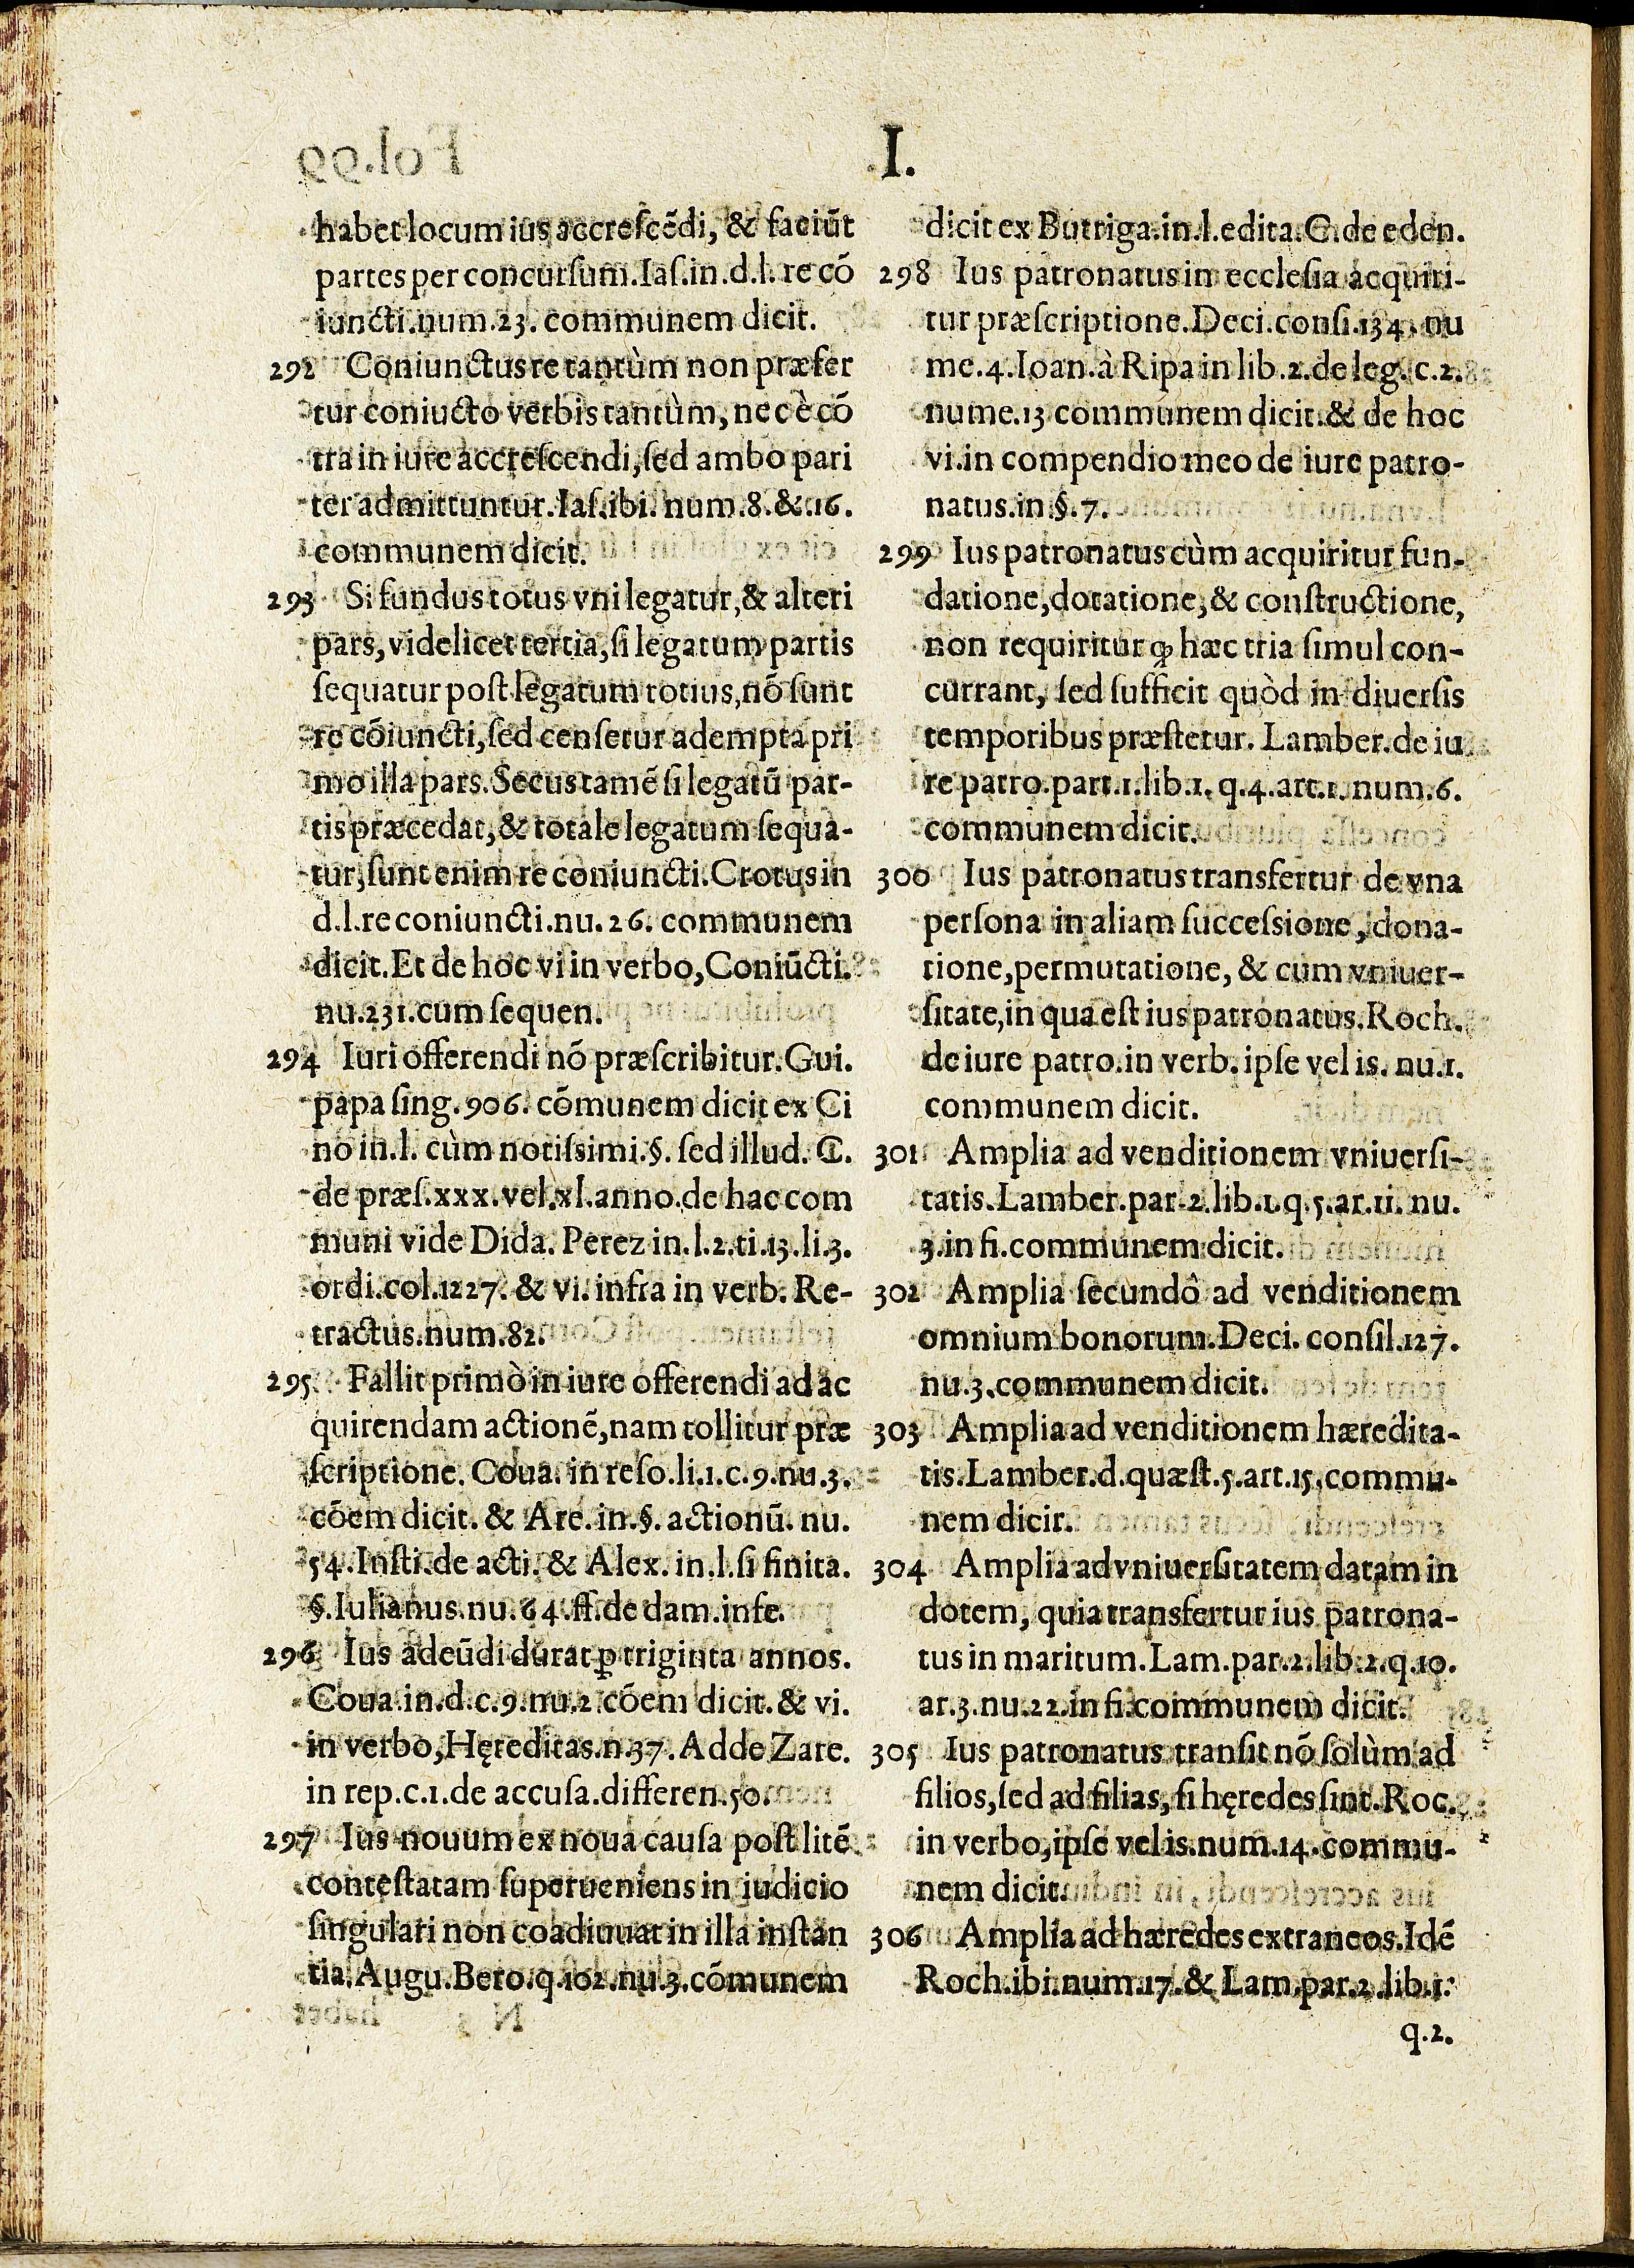 .I.
habet locum ius accreſcẽdi, & faciũt
partes per concurſum. Iaſ.in.d.l. re cõ
iuncti.num.23. communem dicit.
292 Coniunctus re tantùm non præfer
tur coniucto verbis tantùm, nec è cõ
tra in iure accreſcendi, ſed ambo pari
ter admittuntur. Iaſ.ibi. num.8.&.16.
communem dicit.
293 Si fundus totus vni legatur, & alteri
pars, videlicet tertia, ſi legatum partis
ſequatur poſt legatum totius, nõ ſunt
re cõiuncti, ſed cenſetur adempta pri
mo illa pars. Secus tamẽ ſi legatũ par-
tis præcedat, & totale legatum ſequa-
tur, ſunt enim re coniuncti. Crotus in
d.l.re coniuncti.nu.26. communem
dicit. Et de hoc vi in verbo, Coniũcti.
nu.231.cum ſequen.
294 Iuri offerendi nõ præſcribitur. Gui.
papa ſing.906. cõmunem dicit ex Ci
no in.l. cùm notiſsimi.§. ſed illud. C.
de præſ.xxx.vel.xl.anno.de hac com
muni vide Dida. Perez in.l.2.ti.13.li.3.
ordi.col.1227. & vi. infra in verb. Re-
tractus.num.82.
295 Fallit primò in iure offerendi ad ac
quirendam actionẽ, nam tollitur præ
ſcriptione. Coua. in reſo.li.1.c.9.nu.3.
cõem dicit. & Are. in.§. actionũ. nu.
54. Inſti.de acti. & Alex. in.l.ſi finita.
§.Iulianus.nu.64.ff.de dam.infe.
296 Ius adeũdi durat ꝑ triginta annos.
Coua.in.d.c.9.nu.2 cõem dicit. & vi.
in verbo, Hęreditas.n.37. Adde Zare.
in rep.c.1.de accuſa.differen.50.
297 Ius nouum ex noua cauſa poſt litẽ
conteſtatam ſuperueniens in iudicio
ſingulari non coadiuuat in illa inſtan
tia. Augu. Bero.q.102.nu.3.cõmunem
dicit ex Butriga.in.l.edita.C.de eden.
298 Ius patronatus in eccleſia acquiri-
tur præſcriptione. Deci.conſi.134. nu
me.4. Ioan.à Ripa in lib.2.de leg. c.2.
nume.13 communem dicit.& de hoc
vi.in compendio meo de iure patro-
natus.in.§.7.
299 Ius patronatus cùm acquiritur fun-
datione, dotatione, & conſtructione,
non requiritur ꝙ hæc tria ſimul con-
currant, ſed ſufficit quòd in diuerſis
temporibus præſtetur. Lamber.de iu
re patro.part.1.lib.1. q.4.art.1.num.6.
communem dicit.
300 Ius patronatus transfertur de vna
perſona in aliam ſucceſsione, dona-
tione, permutatione, & cum vniuer-
ſitate, in qua eſt ius patronatus. Roch.
de iure patro.in verb. ipſe vel is. nu.1.
communem dicit.
301 Amplia ad venditionem vniuerſi-
tatis. Lamber.par.2.lib.1.q.5.ar.11. nu.
3.in fi.communem dicit.
302 Amplia ſecundô ad venditionem
omnium bonorum. Deci. conſil.127.
nu.3.communem dicit.
303 Amplia ad venditionem hæredita-
tis. Lamber.d.quæſt.5.art.15.commu-
nem dicit.
304 Amplia ad vniuerſitatem datam in
dotem, quia transfertur ius patrona-
tus in maritum. Lam.par.2.lib.2.q.10.
ar.3.nu.22.in fi.communem dicit.
305 Ius patronatus tranſit nõ ſolùm ad
filios, ſed ad filias, ſi hęredes ſint. Roc.
in verbo, ipſe vel is.num.14.commu-
nem dicit.
306 Amplia ad hæredes extraneos. Idẽ
Roch.ibi.num.17.& Lam.par.2.lib.1.
q.2.